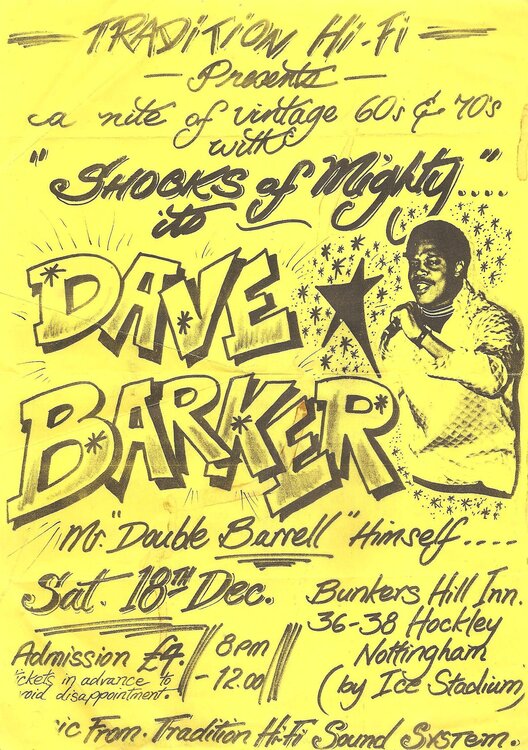 TRADITION Hi-Fi
— Presents —
a nite of vintage 60s & 70's
with
"SHOCKS of Mighty...."
its
DAVE
BARKER
Mr. "Double Barrell" Himself....
Sat. 18TH Dec.
Bunkers Hill Inn.
36-38 Hockley
Nottingham
(by Ice Stadium)
Admission £4.
ickets in advance to
void disappointment
8pm
- 12.00
ic From. Tradition Hi-Fi Sound System.